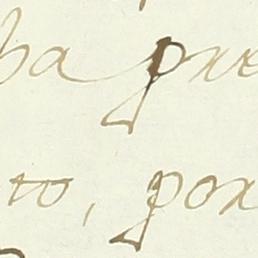 ba pre
to, por